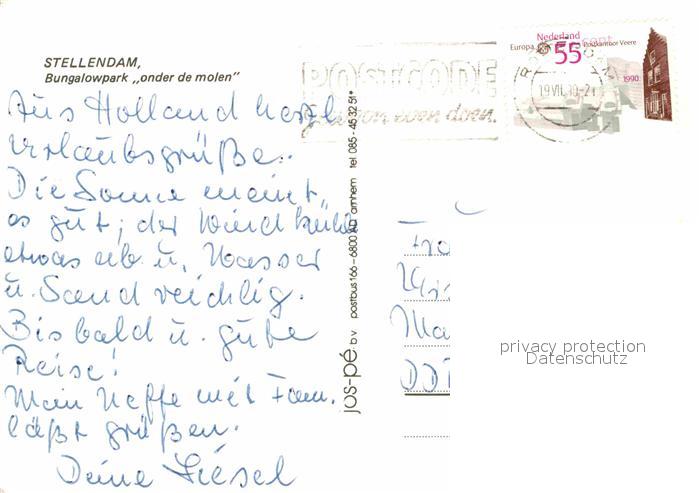 STELLENDAM,
Bungalowpark „onder de molen"
Aus Holland herzl.
Urlaubsgrüße.
Die Sonne meint
es gut, der Wind kühlt
etwas ab u. Wasser
u. Sand reichlig.
Bis bald u. gute
Reise!
Mein Neffe mit Fam.
läßt grüßen.
Deine Liesel
jos-pé b.v. postbus 166 - 6800 arnhem tel. 085-453251*
POSTCODE
doen.
Nederland
Europa 55 cent Postkantoor Veere
1990
19 VII
Fra
Ma
DD
privacy protection
Datenschutz